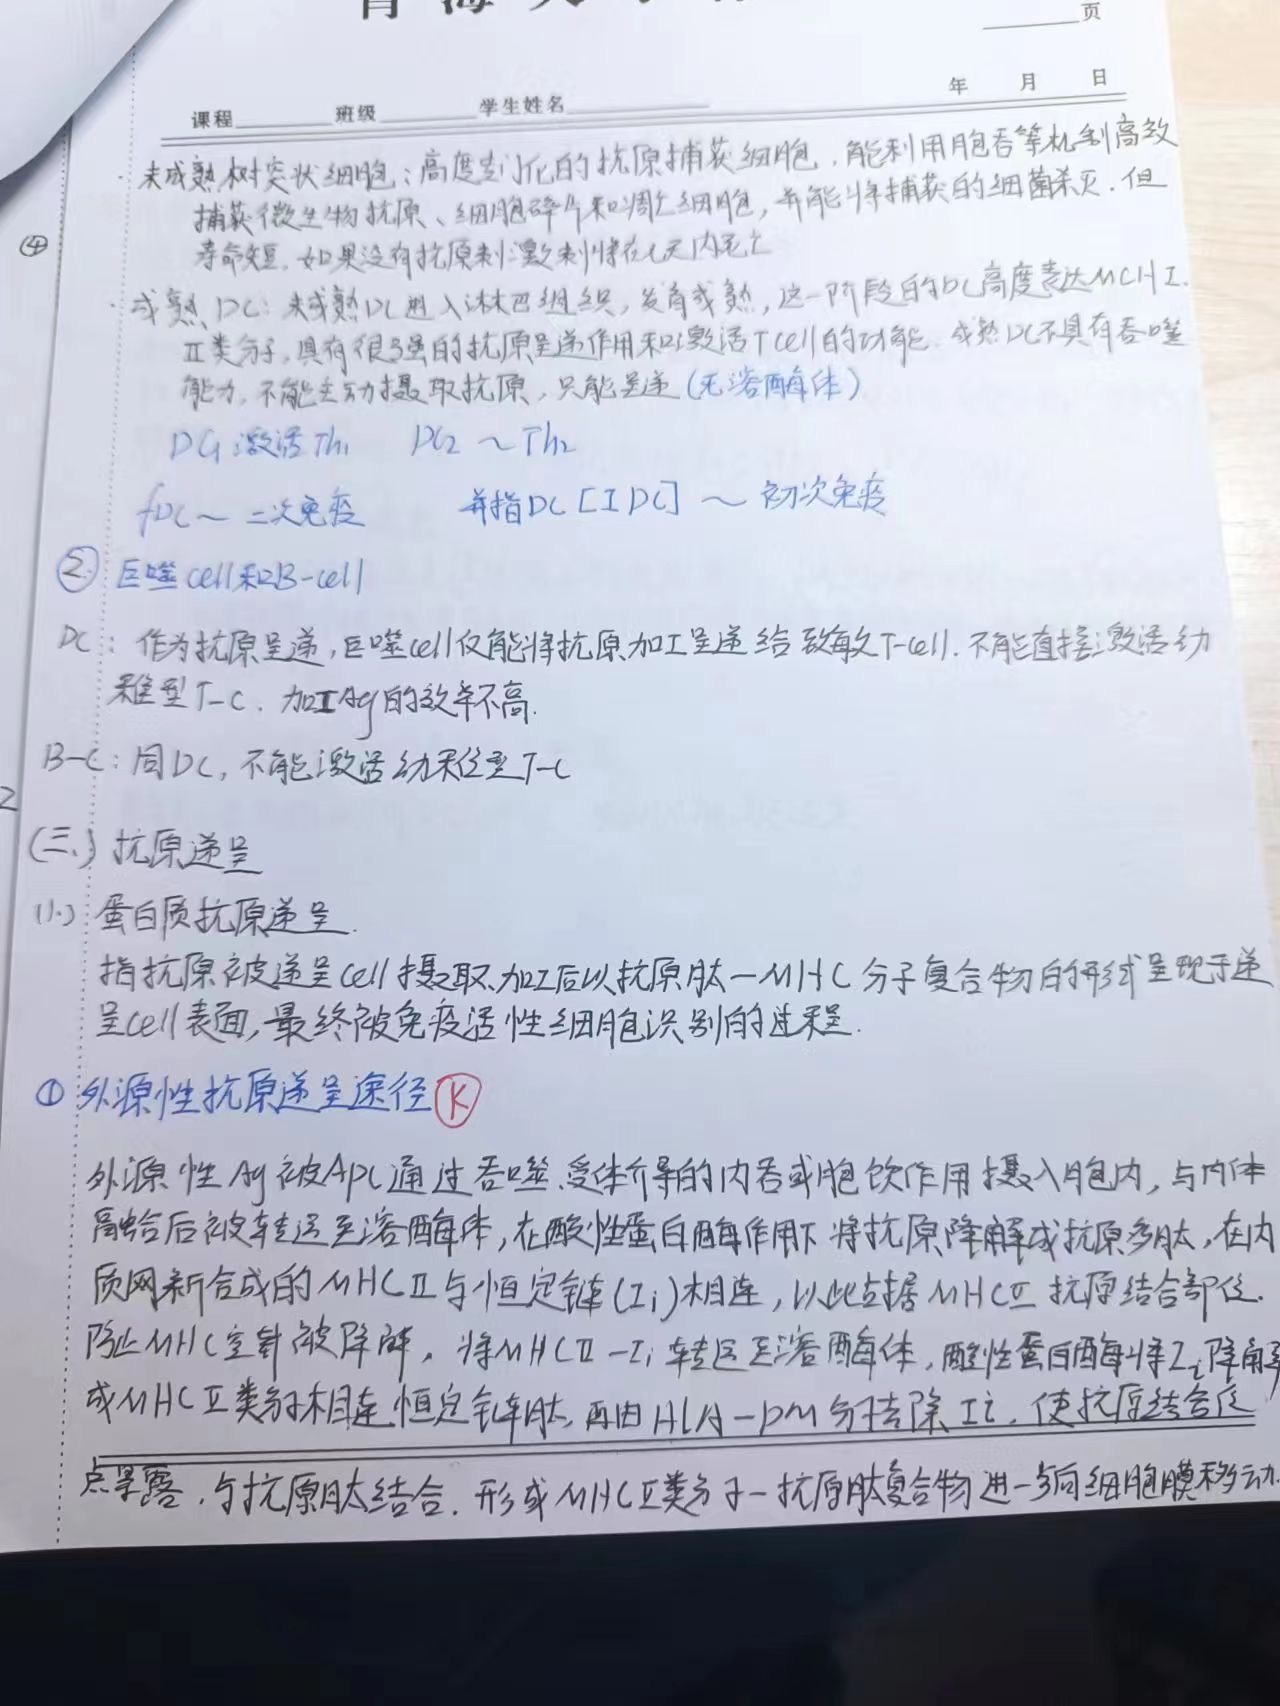 页
年 月 日
课程 班级 学生姓名
· 未成熟树突状细胞：高度专门化的抗原捕获细胞，能利用胞吞等机制高效
捕获微生物抗原、细胞碎片和凋亡细胞，并能将捕获的细菌杀灭，但
寿命短，如果没有抗原刺激刺将在七天内死亡
④
· 成熟DC：未成熟DC进入淋巴组织，发育成熟，这一阶段的DC高度表达MCH I.
II类分子，具有很强的抗原呈递作用和激活Tcell的功能. 成熟DC不具有吞噬
能力，不能主动摄取抗原，只能呈递（无溶酶体）
DC1激活Th1 DC2 ~ Th2
fDC ~ 二次免疫 并指DC [IDC] ~ 初次免疫
② 巨噬cell和B-cell
DC：作为抗原呈递，巨噬cell仅能将抗原加工呈递给致敏T-cell. 不能直接激活幼
稚型T-C. 加工Ag的效率不高.
B-C：同DC，不能激活幼稚型T-C
2
(三.) 抗原递呈
(1.) 蛋白质抗原递呈.
指抗原被递呈cell摄取、加工后以抗原肽—MHC分子复合物的形式呈现于递
呈cell表面，最终被免疫活性细胞识别的过程.
① 外源性抗原递呈途径 K
外源性Ag被APC通过吞噬、受体介导的内吞或胞饮作用摄入胞内，与内体
融合后被转运至溶酶体，在酸性蛋白酶作用下将抗原降解成抗原多肽，在内
质网新合成的MHCII与恒定链(Ii)相连，以此占据MHCII抗原结合部位.
防止MHC空转被降解，将MHCII-Ii转运至溶酶体，酸性蛋白酶将Ii降解
成MHCII类分子相连恒定链肽，再由HLA-DM分子去除Ii，使抗原结合位
点暴露，与抗原肽结合. 形成MHCII类分子—抗原肽复合物进一步向细胞膜移动.